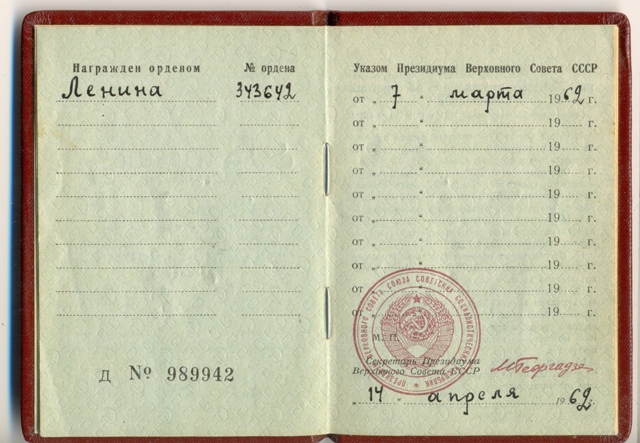 Награжден орденом № ордена
Ленина 343642
Д № 989942
Указом Президиума Верховного Совета СССР
от „ 7 “ марта 1962 г.
от „ “ 19 г.
от „ “ 19 г.
от „ “ 19 г.
от „ “ 19 г.
от „ “ 19 г.
от „ “ 19 г.
от „ “ 19 г.
от „ “ 19 г.
от „ “ 19 г.
М. П.
Секретарь Президиума
Верховного Совета СССР
МГеоргадзе
„ 14 “ апреля 1962 г.